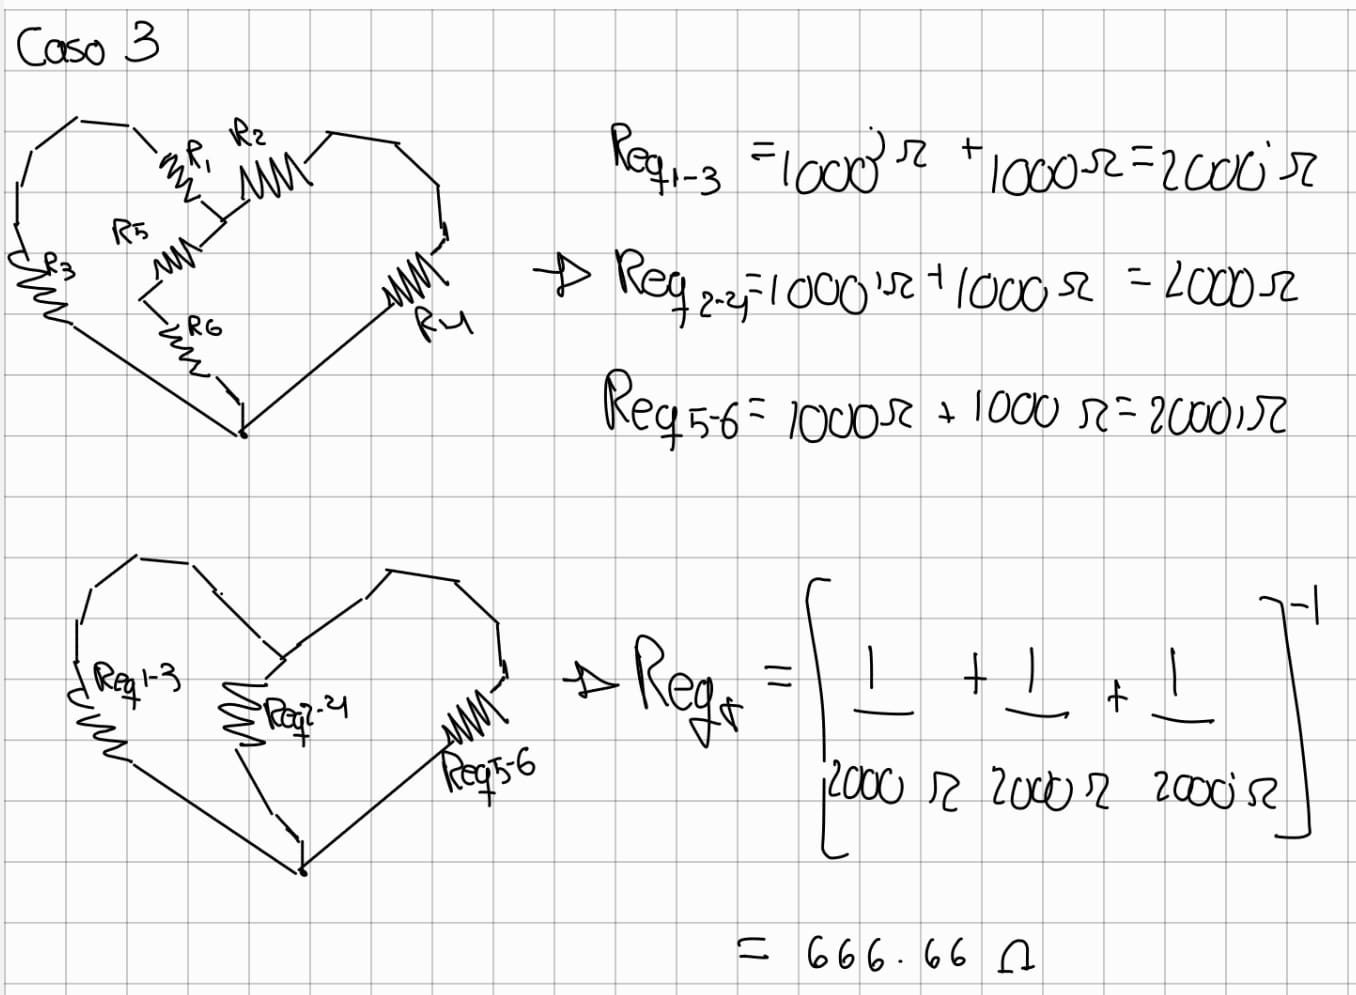 Caso 3
R1
R2
R5
R3
R6
R4
Req1-3 = 1000 Ω + 1000 Ω = 2000 Ω
→ Req2-4 = 1000 Ω + 1000 Ω = 2000 Ω
Req5-6 = 1000 Ω + 1000 Ω = 2000 Ω
Req1-3
Req2-4
Req5-6
→ Reqt = [ 1/2000 Ω + 1/2000 Ω + 1/2000 Ω ]^-1
= 666.66 Ω